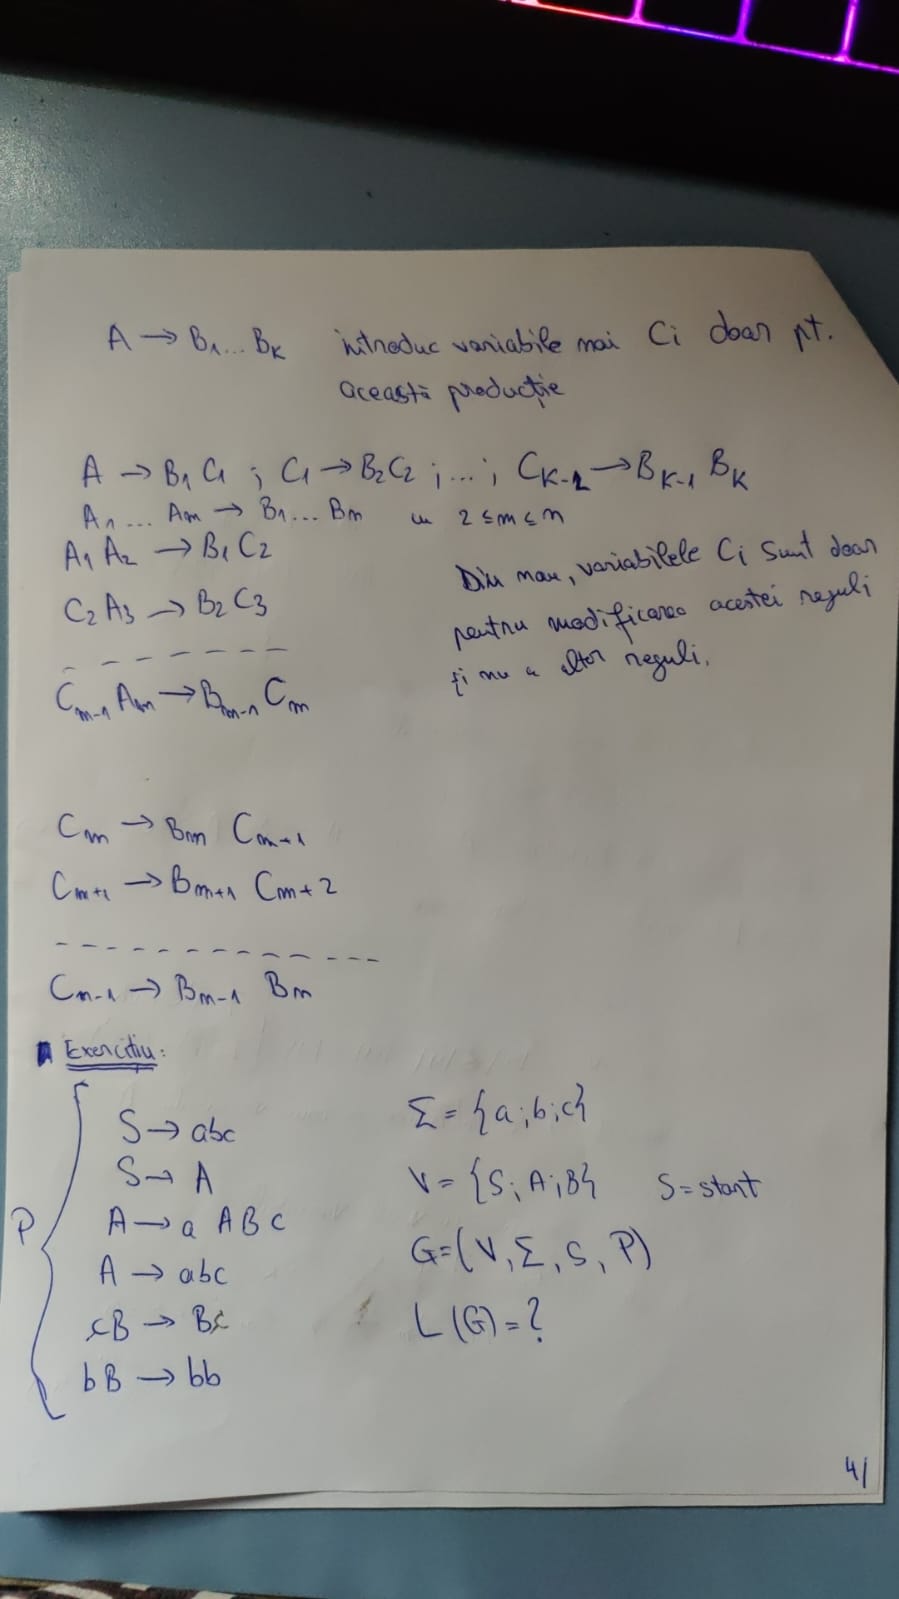 A → B1 ... BK introduc variabile mai Ci doar pt.
această producție
A → B1 C1 ; C1 → B2C2 ; ... ; CK-2 → BK-1 BK
A1 ... Am → B1 ... Bm cu 2 ≤ m ≤ n
A1 A2 → B1 C2
C2 A3 → B2 C3
Din nou, variabilele Ci sunt doar
pentru modificarea acestei reguli
și nu a altor reguli.
Cm-1 Am → Bm-1 Cm
Cm → Bm Cm+1
Cm+1 → Bm+1 Cm+2
Cn-1 → Bm-1 Bm
Exercițiu:
P
S → abc
S → A
A → a A B c
A → abc
cB → Bc
bB → bb
Σ = {a;b;c}
V = {S; A; B} S = start
G = (V, Σ, S, P)
L(G) = ?
4/